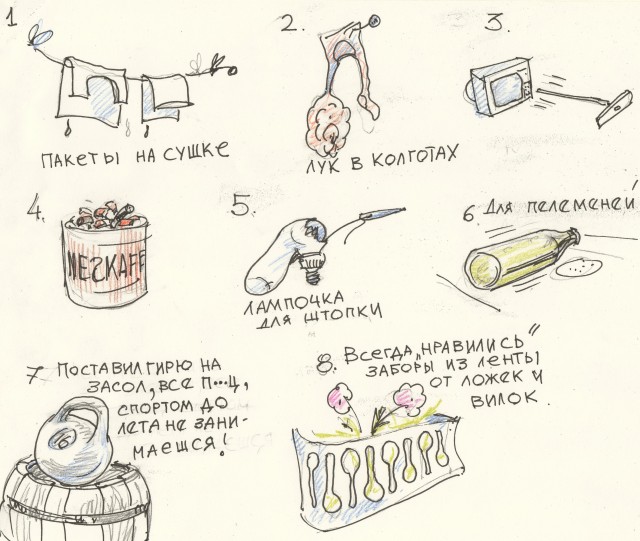 1
ПАКЕТЫ НА СУШКЕ
2.
ЛУК В КОЛГОТАХ
3.
4.
NESKAFE
5.
ЛАМПОЧКА
ДЛЯ ШТОПКИ
6 ДЛЯ ПЕЛЕМЕНЕЙ
7 ПОСТАВИЛ ГИРЮ НА
ЗАСОЛ, ВСЕ П***Ц,
СПОРТОМ ДО
ЛЕТА НЕ ЗАНИ-
МАЕШСЯ!
6
8. ВСЕГДА „НРАВИЛИСЬ"
ЗАБОРЫ ИЗ ЛЕНТЫ
ОТ ЛОЖЕК И
ВИЛОК.